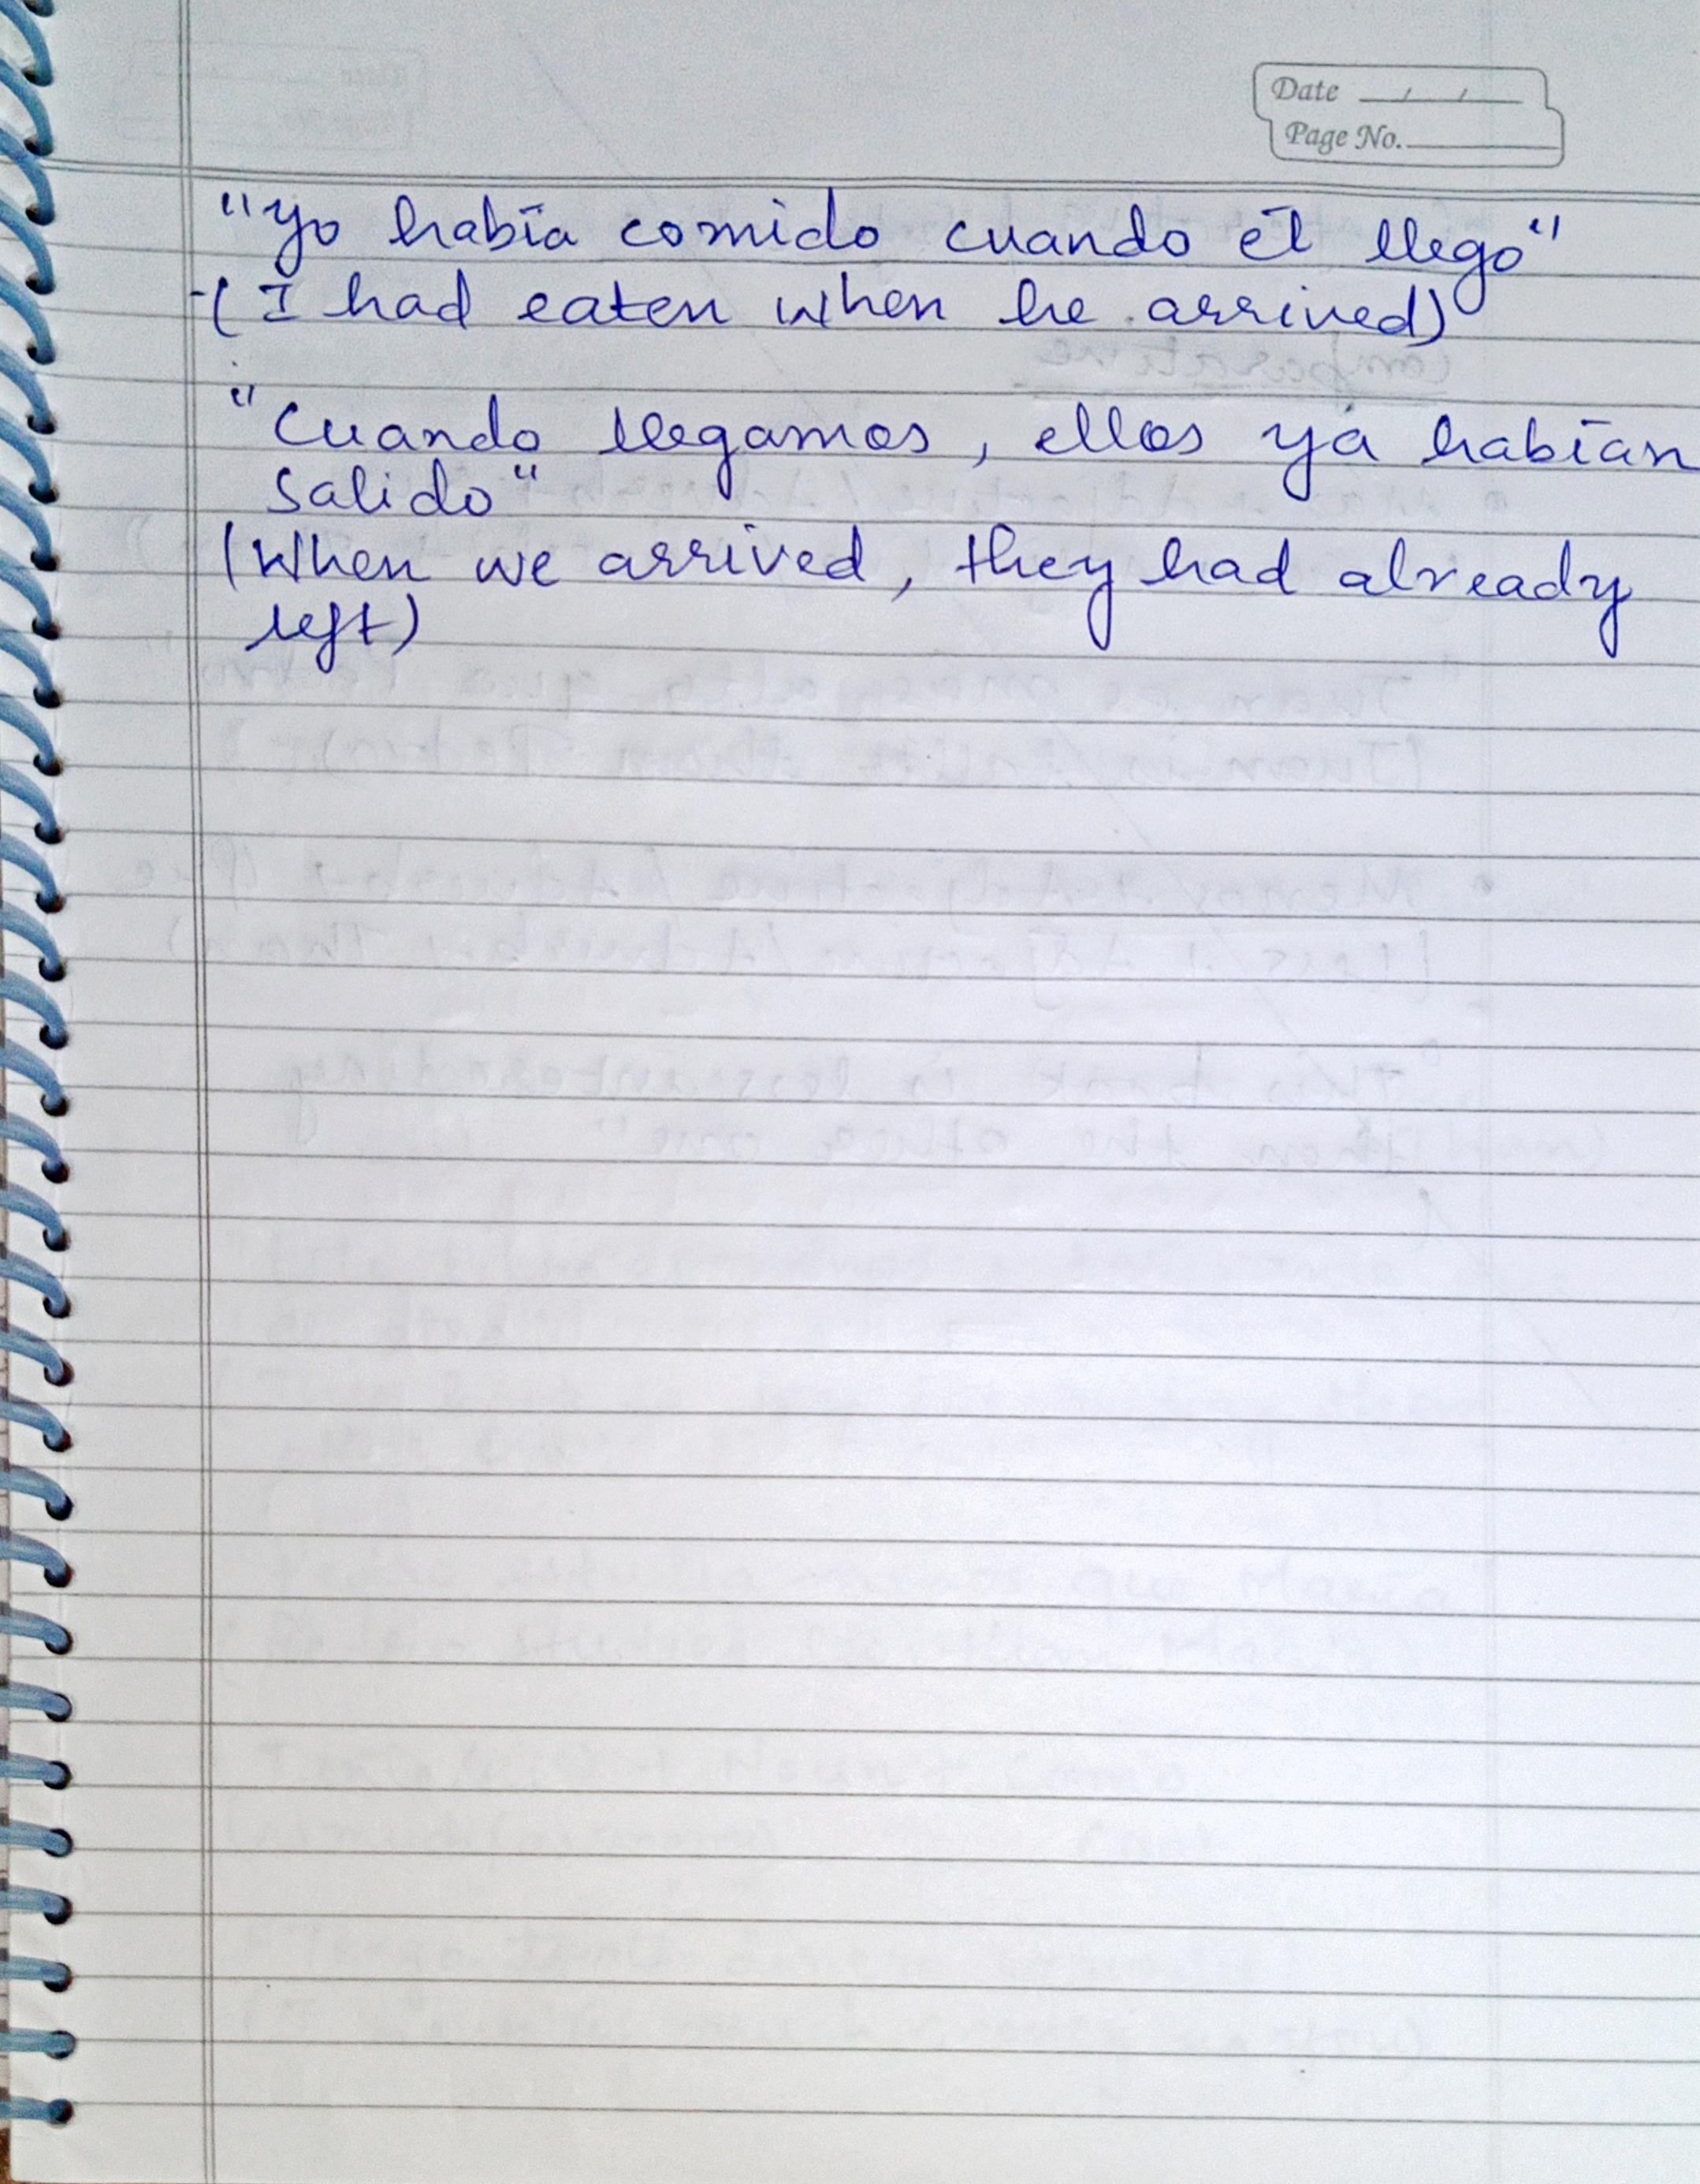 Date __/__/__
Page No. ______
"Yo había comido cuando él llego"
-(I had eaten when he arrived)
"Cuando llegamos, ellos ya habían
salido"
(When we arrived, they had already
left)